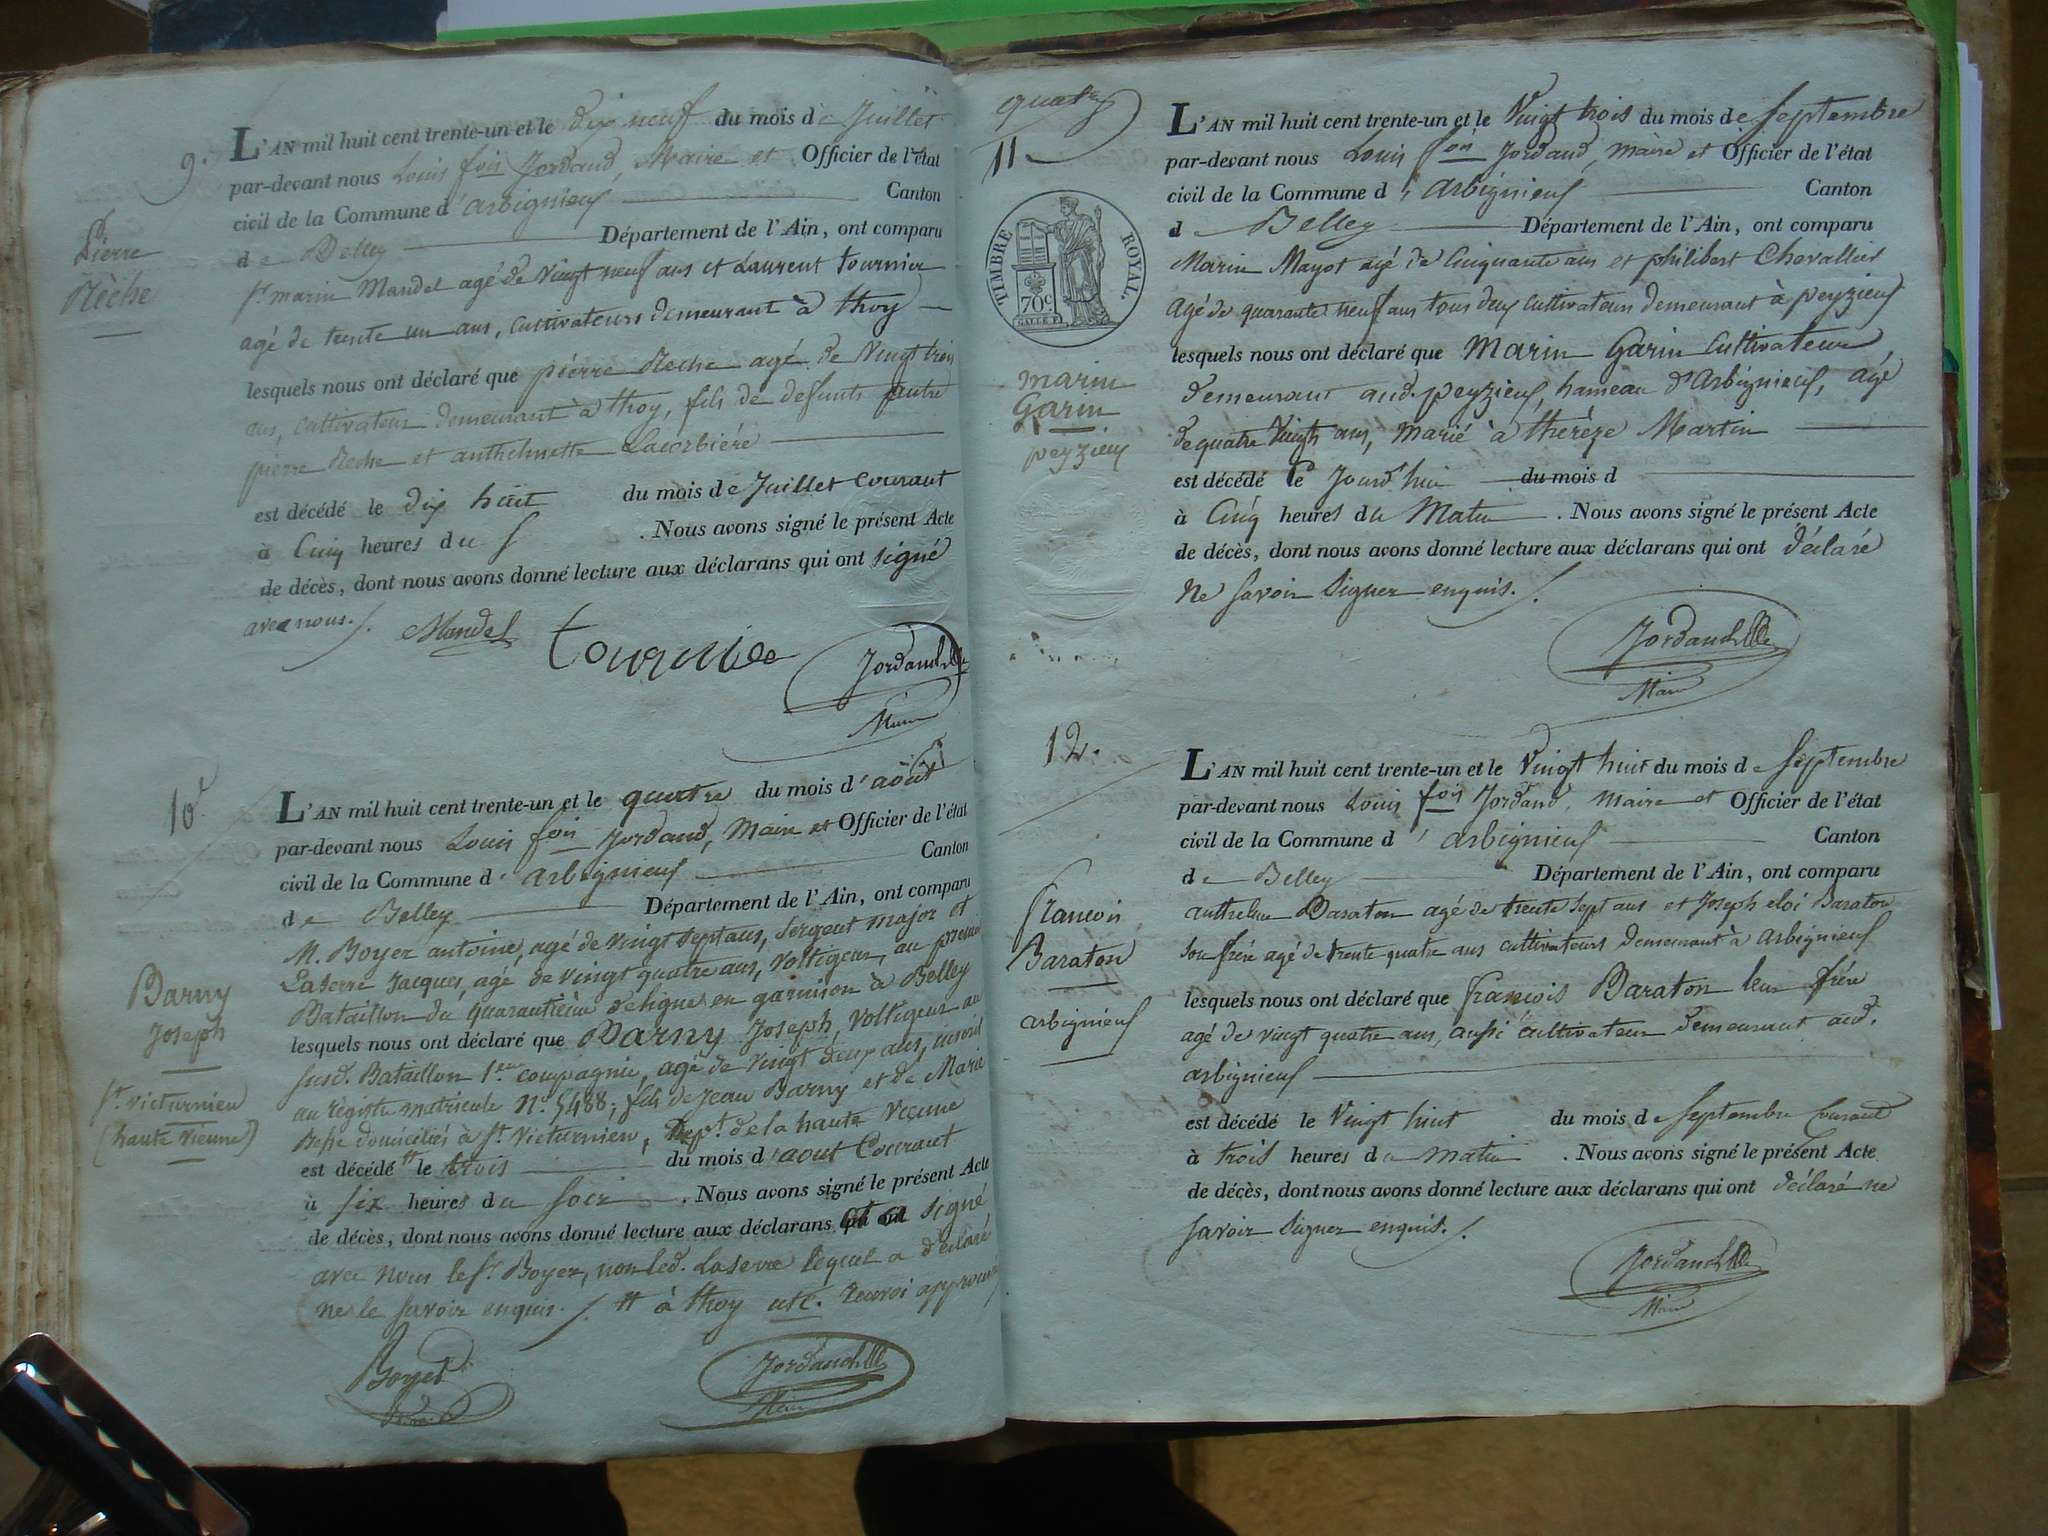 9.
Pierre
Rèche
L'AN mil huit cent trente-un et le dix neuf du mois de Juillet
par-devant nous Louis fois Jordand, Maire et Officier de l'état
civil de la Commune d'arbignieuf Canton
de Belley Département de l'Ain, ont comparu
Sr. marin Mandel agé de vingt neuf ans et Laurent tournier
agé de trente un ans, cultivateurs demeurant à thoy
lesquels nous ont déclaré que pièrre Reche agé de Vingt trois
ans, cultivateur demeurant à thoy, fils de defunts autre
pièrre Reche et anthelmette Lacorbière
est décédé le dix huit du mois de Juillet Courant
à Cinq heures du S . Nous avons signé le présent Acte
de décès, dont nous avons donné lecture aux déclarans qui ont signé
avec nous.
Mandel tournier Jordand
Maire
10.
Barny
Joseph
St. victurnien
(haute vienne)
L'AN mil huit cent trente-un et le quatre du mois d'août
par-devant nous Louis fois Jordand, Maire et Officier de l'état
civil de la Commune d'arbignieuf Canton
de Belley Département de l'Ain, ont comparu
M. Boyer antoine, agé de vingt sept ans, Sergent major et
Laserre Jacques, agé de vingt quatre ans, voltigeur, au premier
Bataillon du quarantième de ligne en garnison à Belley
lesquels nous ont déclaré que Barny Joseph, Voltigeur au
susd. Bataillon 1ere compagnie, agé de vingt deux ans, inscrit
au régistre matricule No. 5488; fils de Jean Barny et de Marie
domiciliés à St. Victurnien, Dept. de la haute Vienne
est décédé tt le trois du mois d'aout Courant
à six heures du soir . Nous avons signé le présent Acte
de décès, dont nous avons donné lecture aux déclarans signé
avec nous le Sr. Boyer, non led. Laserre lequel a déclaré
ne le savoir enquis. tt à thoy Renvoi approuvé
Boyer
Jordand
Maire
quatre
11.
TIMBRE ROYAL.
70c.
marin
Garin
peyzieu
L'AN mil huit cent trente-un et le Vingt trois du mois de Septembre
par-devant nous Louis fois Jordand, maire et Officier de l'état
civil de la Commune d'arbignieuf Canton
de Belley Département de l'Ain, ont comparu
Marin Mayot agé de Cinquante ans et philibert Chevallier
agé de quarante neuf ans tous deux cultivateurs demeurant à peyzieuf
lesquels nous ont déclaré que Marin Garin Cultivateur
demeurant aud. peyzieuf, hameau d'arbignieuf, agé
de quatre Vingts ans, marié à thérèze Martin
est décédé ce Jourd'hui du mois d
à Cinq heures du Matin . Nous avons signé le présent Acte
de décès, dont nous avons donné lecture aux déclarans qui ont déclaré
ne savoir signer enquis.
Jordand
Maire
12.
francois
Baraton
arbignieuf
L'AN mil huit cent trente-un et le Vingt huit du mois de Septembre
par-devant nous Louis fois Jordand, Maire et Officier de l'état
civil de la Commune d'arbignieuf Canton
de Belley Département de l'Ain, ont comparu
anthelme Baraton agé de trente sept ans et Joseph eloi Baraton
son frère agé de trente quatre ans cultivateurs demeurant à arbignieuf
lesquels nous ont déclaré que francois Baraton leur frère
agé de vingt quatre ans, aussi cultivateur demeurant aud.
arbignieuf
est décédé le Vingt huit du mois de Septembre Courant
à trois heures du matin . Nous avons signé le présent Acte
de décès, dont nous avons donné lecture aux déclarans qui ont déclaré ne
savoir signer enquis.
Jordand
Maire